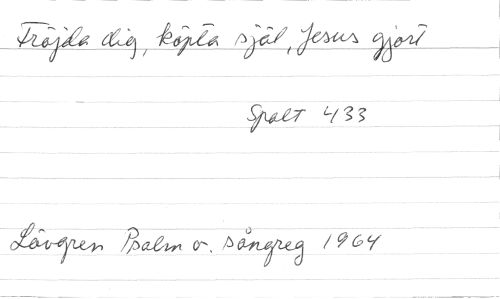 Fröjda dig, köpta själ, Jesus gjort
Spalt 433
Lövgren Psalm o. sångreg 1964